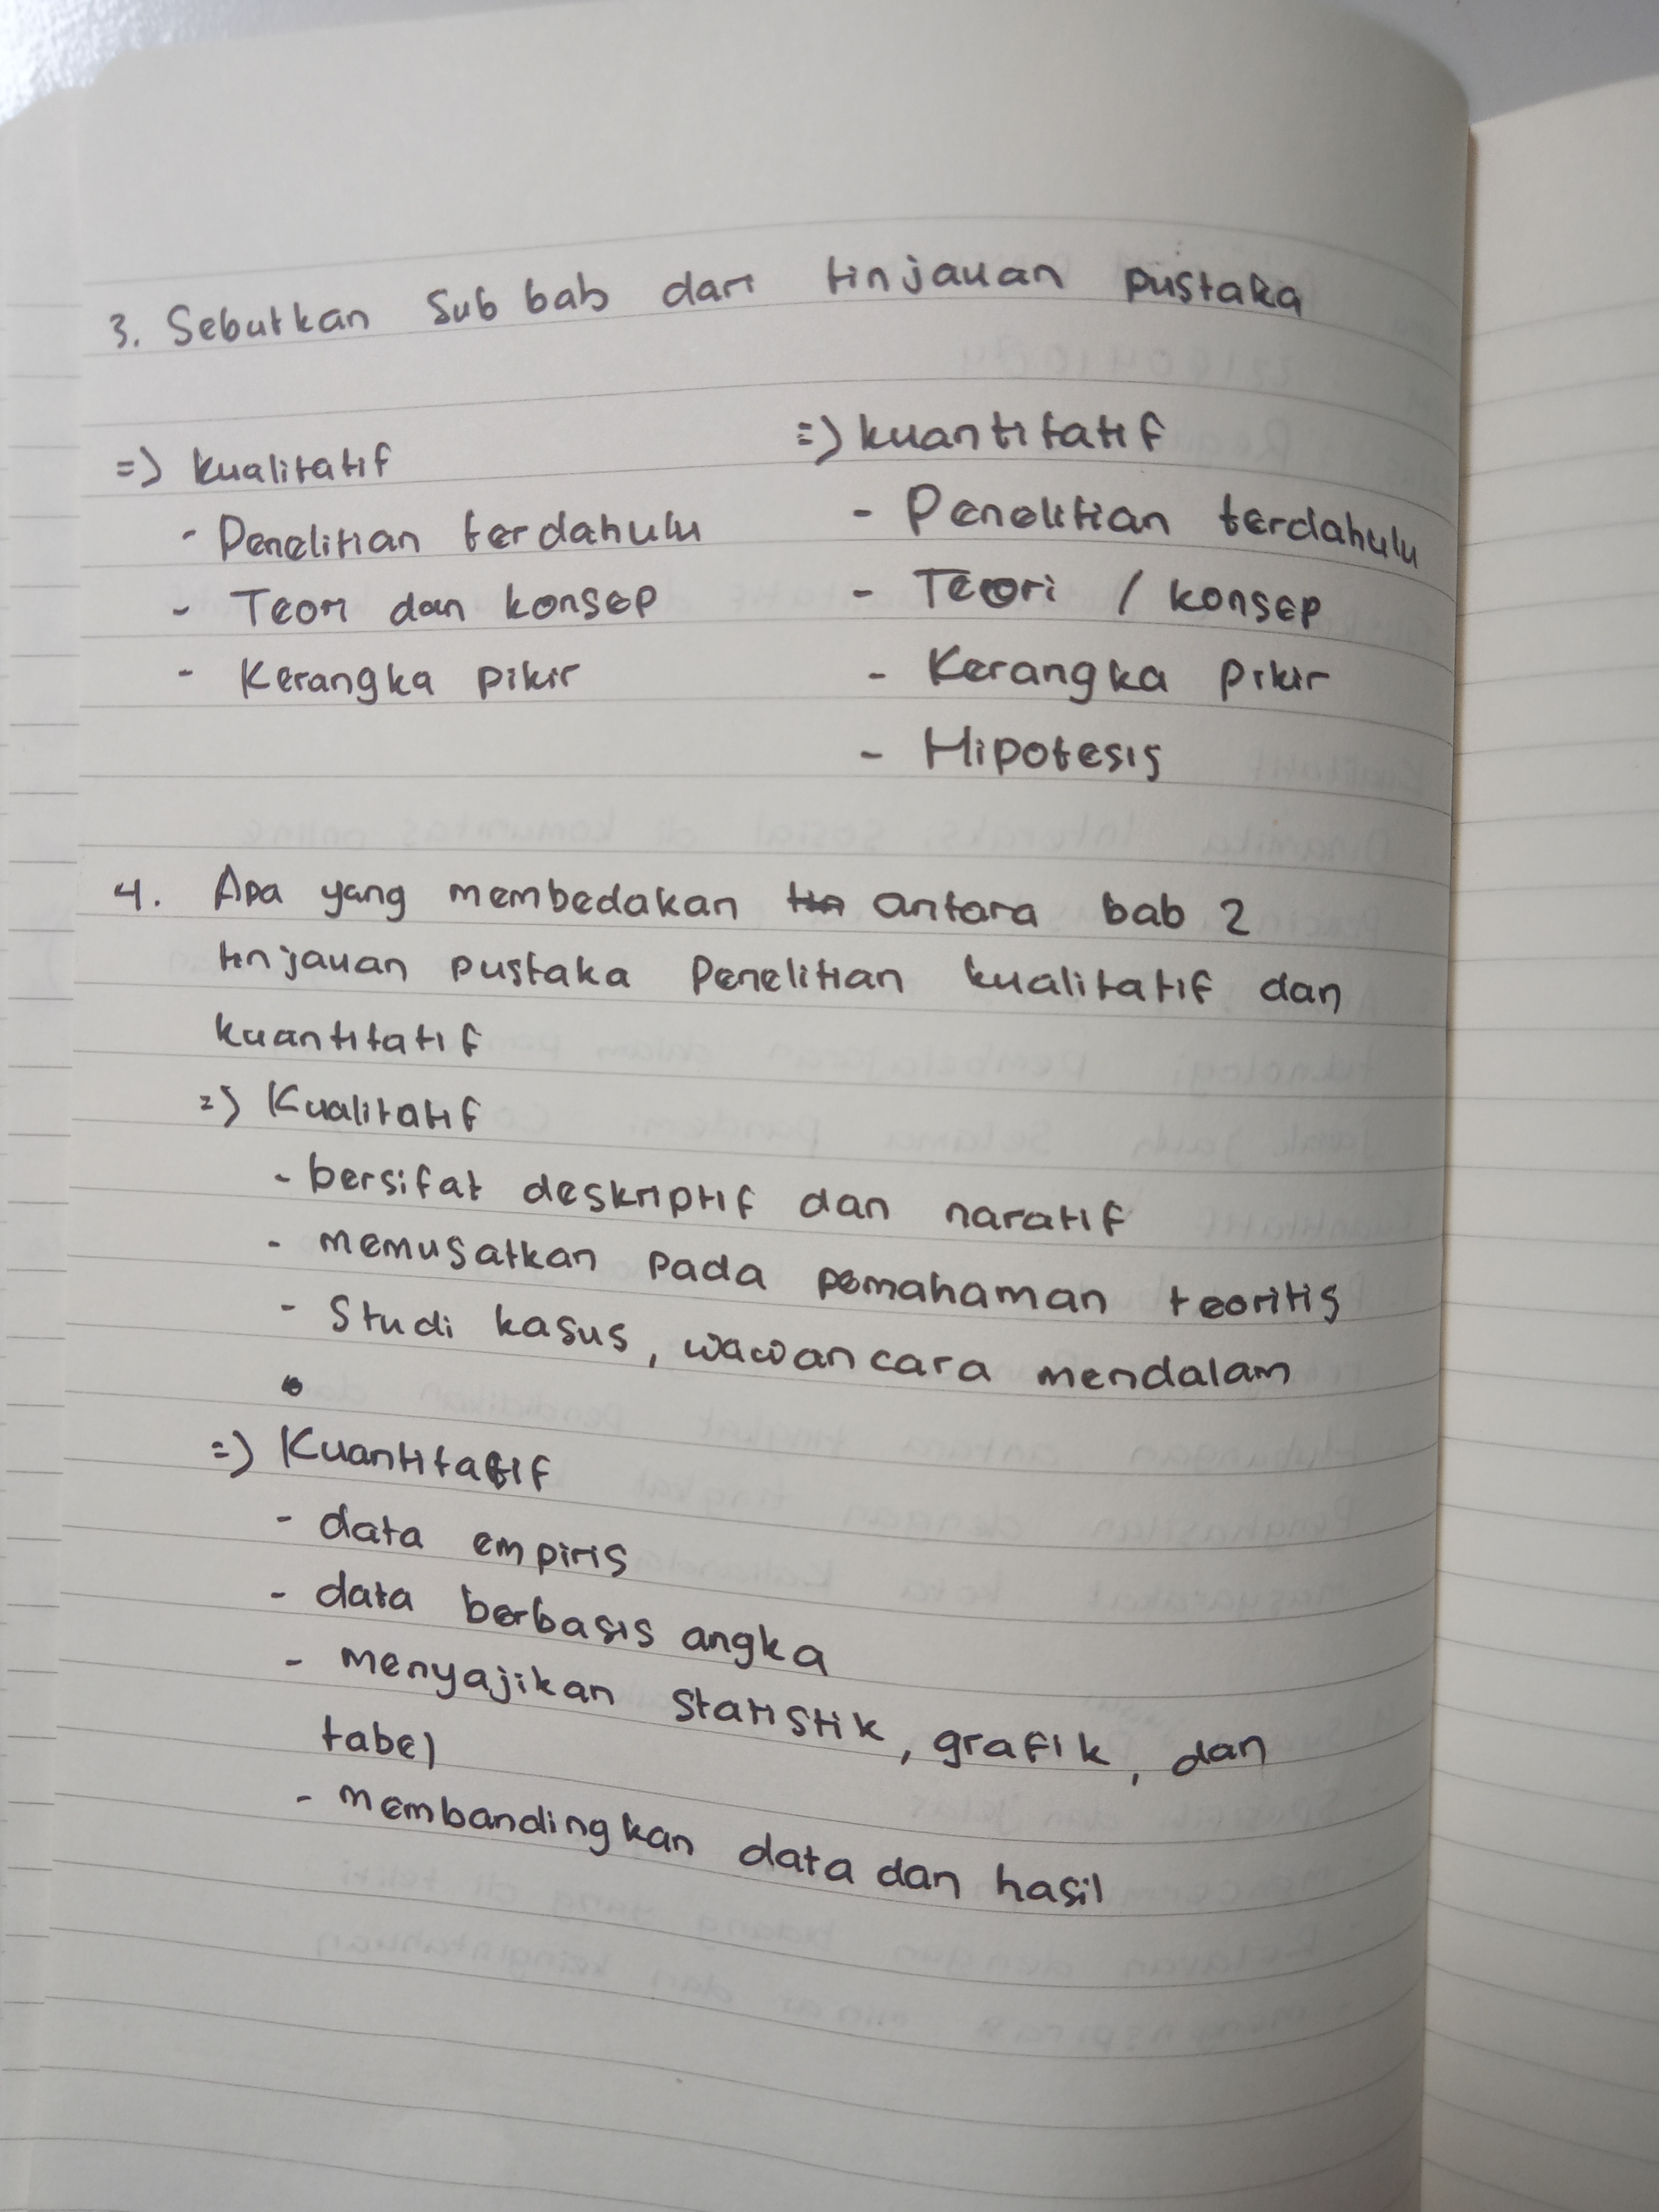 3. Sebutkan Sub bab dari tinjauan pustaka
=> kualitatif
- Penelitian terdahulu
- Teori dan konsep
- Kerangka pikir
=> kuantitatif
- Penelitian terdahulu
- Teori / konsep
- Kerangka pikir
- Hipotesis
4. Apa yang membedakan antara bab 2
tinjauan pustaka Penelitian kualitatif dan
kuantitatif
=> Kualitatif
- bersifat deskriptif dan naratif
- memusatkan pada pemahaman teoritis
- Studi kasus, wawancara mendalam
=> Kuantitatif
- data empiris
- data berbasis angka
- menyajikan statistik, grafik, dan
tabel
- membandingkan data dan hasil